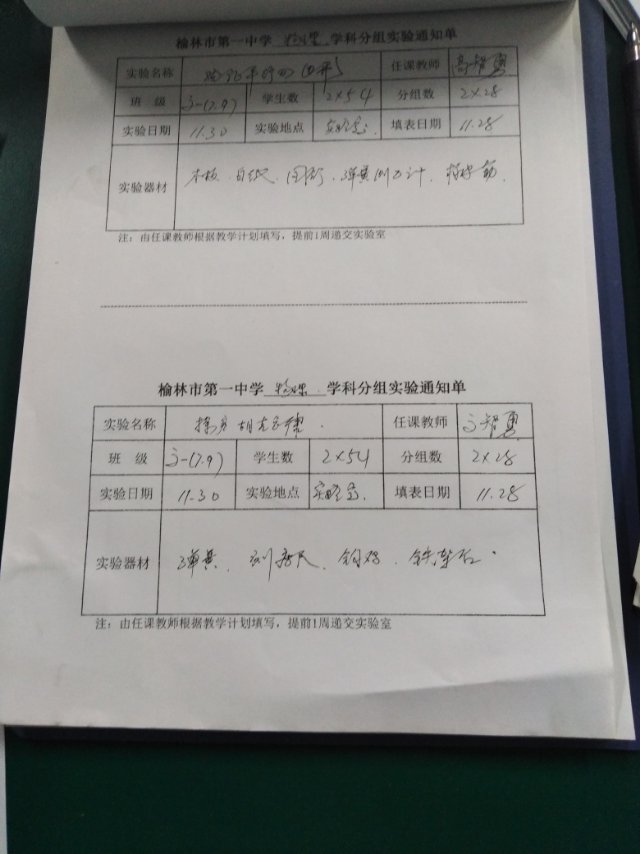 榆林市第一中学 物理 学科分组实验通知单
实验名称 验证平行四边形 任课教师 高智勇
班 级 高一(7.9) 学生数 2×54 分组数 2×28
实验日期 11.30 实验地点 实验室. 填表日期 11.28
实验器材 木板、白纸、图钉、弹簧测力计、橡皮筋.
注：由任课教师根据教学计划填写，提前1周递交实验室
榆林市第一中学 物理. 学科分组实验通知单
实验名称 探究胡克定律. 任课教师 高智勇
班 级 高一(7.9) 学生数 2×54 分组数 2×28
实验日期 11.30 实验地点 实验室. 填表日期 11.28
实验器材 弹簧、刻度尺、钩码、铁架台.
注：由任课教师根据教学计划填写，提前1周递交实验室